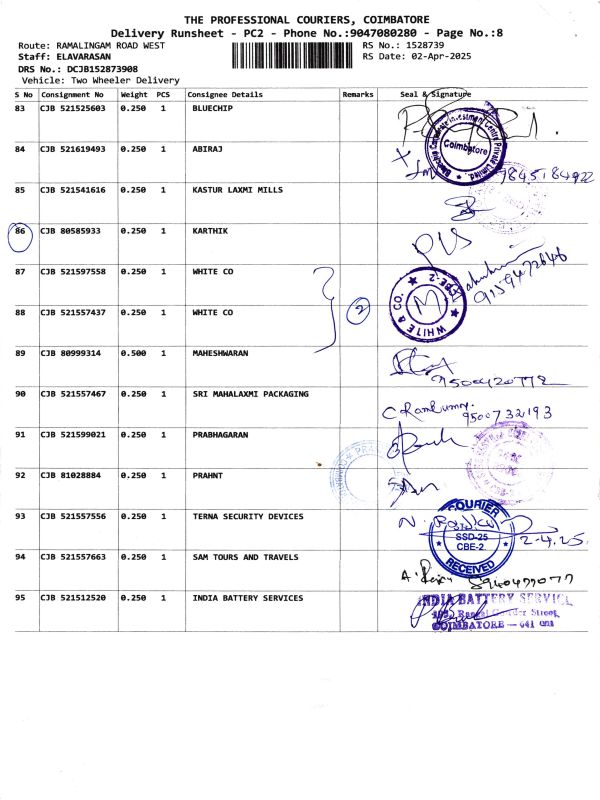 THE PROFESSIONAL COURIERS, COIMBATORE
Delivery Runsheet - PC2 - Phone No.:9047080280 - Page No.:8
Route: RAMALINGAM ROAD WEST RS No.: 1528739
Staff: ELAVARASAN RS Date: 02-Apr-2025
DRS No.: DCJB152873908
Vehicle: Two Wheeler Delivery
S No Consignment No Weight PCS Consignee Details Remarks Seal & Signature
83 CJB 521525603 0.250 1 BLUECHIP
Bluechip Corporate Investment Centre Private Limited.
Coimbatore
84 CJB 521619493 0.250 1 ABIRAJ
7845184922
85 CJB 521541616 0.250 1 KASTUR LAXMI MILLS
86 CJB 80585933 0.250 1 KARTHIK
87 CJB 521597558 0.250 1 WHITE CO
9159472646
WHITE & CO.
CBE-2
M
88 CJB 521557437 0.250 1 WHITE CO 2
89 CJB 80999314 0.500 1 MAHESHWARAN
9500420772
90 CJB 521557467 0.250 1 SRI MAHALAXMI PACKAGING
9500732193
91 CJB 521599021 0.250 1 PRABHAGARAN
92 CJB 81028884 0.250 1 PRAHNT
93 CJB 521557556 0.250 1 TERNA SECURITY DEVICES
COURIER
SSD-25
CBE-2
RECEIVED
2-4.25.
94 CJB 521557663 0.250 1 SAM TOURS AND TRAVELS
95 CJB 521512520 0.250 1 INDIA BATTERY SERVICES
INDIA BATTERY SERVICE
Street,
COIMBATORE - 641 001